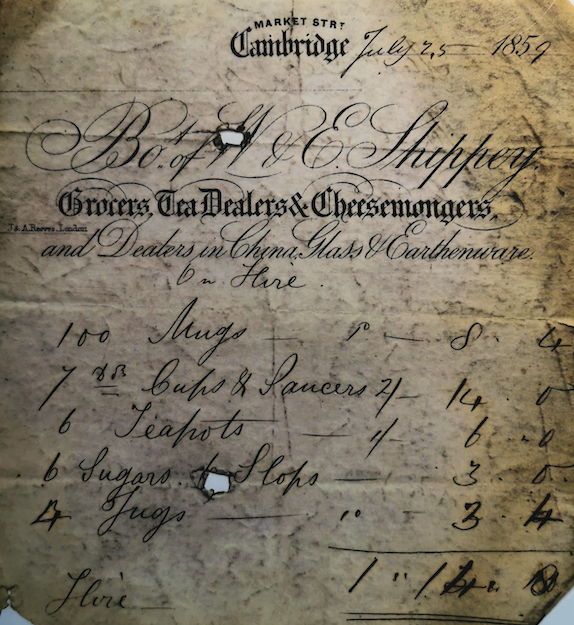 MARKET STRT
Cambridge July 25 1859
Bot. of W & E Shippey.
Grocers, Tea Dealers & Cheesemongers,
J & A. Reeves, London
and Dealers in China, Glass & Earthenware.
On Hire.
100 Mugs — — 8 . 4
7 Cups & Saucers 2/- 14 . 0
6 Teapots — 1/- 6 . 0
6 Sugars & Slops — 3 . 0
4 Jugs — " 3 . 4
Hire 1 " 14 " 8